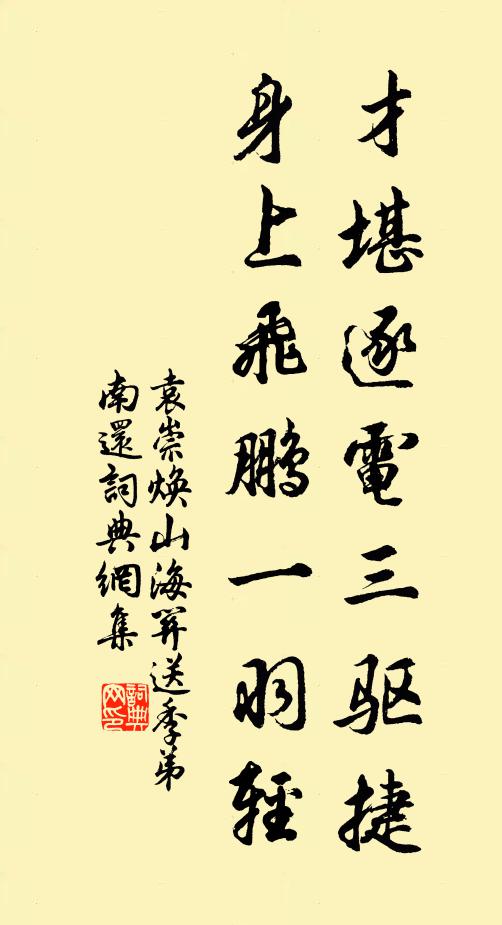 才堪逐電三驱捷
身上飛鵬一羽輕
袁崇煥山海關送季弟
南還詞典網集
詞典网印